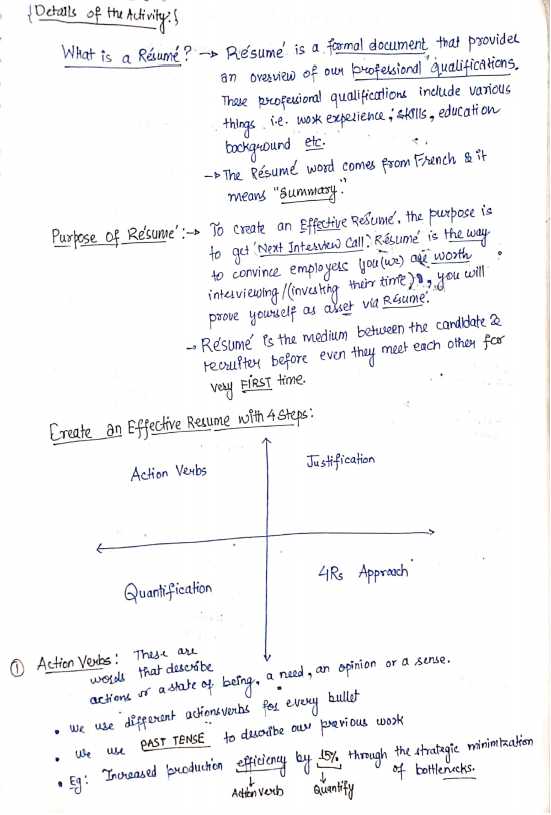 {Details of the Activity:}
What is a Résumé? → Résumé is a formal document that provides
an overview of our professional qualifications.
These professional qualifications include various
things i.e. work experience, skills, education
background etc.
→ The Résumé word comes from French & it
means "Summary."
Purpose of Résumé:→ To create an Effective Resume, the purpose is
to get 'Next Interview Call'. Résumé is the way
to convince employers you(we) are worth
interviewing/(investing their time), you will
prove yourself as asset via Résume.
→ Résumé is the medium between the candidate &
recruiter before even they meet each other for
very FIRST time.
Create an Effective Resume with 4 Steps:
Action Verbs
Justification
Quantification
4Rs Approach
① Action Verbs: These are
words that describe
actions or a state of being, a need, an opinion or a sense.
• We use different actionsverbs for every bullet
• We use PAST TENSE to describe our previous work
• Eg: Increased production efficiency by 15% through the strategic minimization
of bottlenecks.
Action verb
Quantify